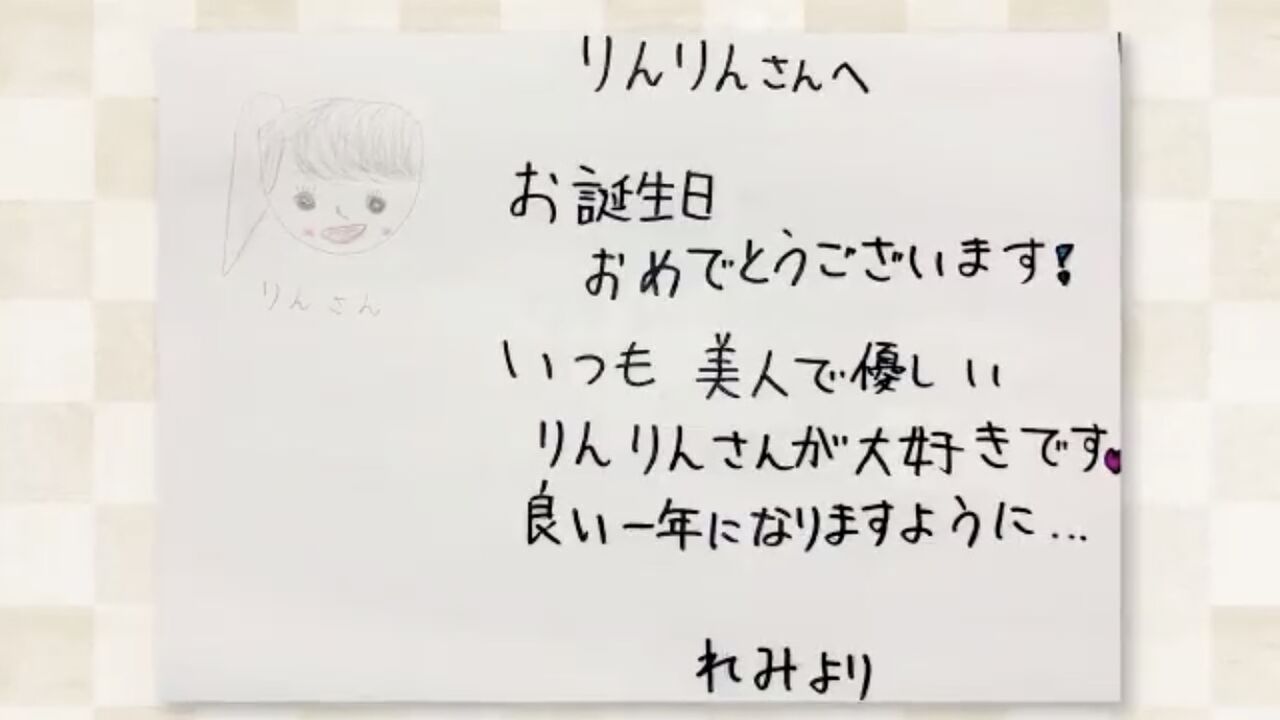 りんりんさんへ
りんさん
お誕生日
おめでとうございます!
いつも 美人で優しい
りんりんさんが大好きです
良い一年になりますように...
れみより